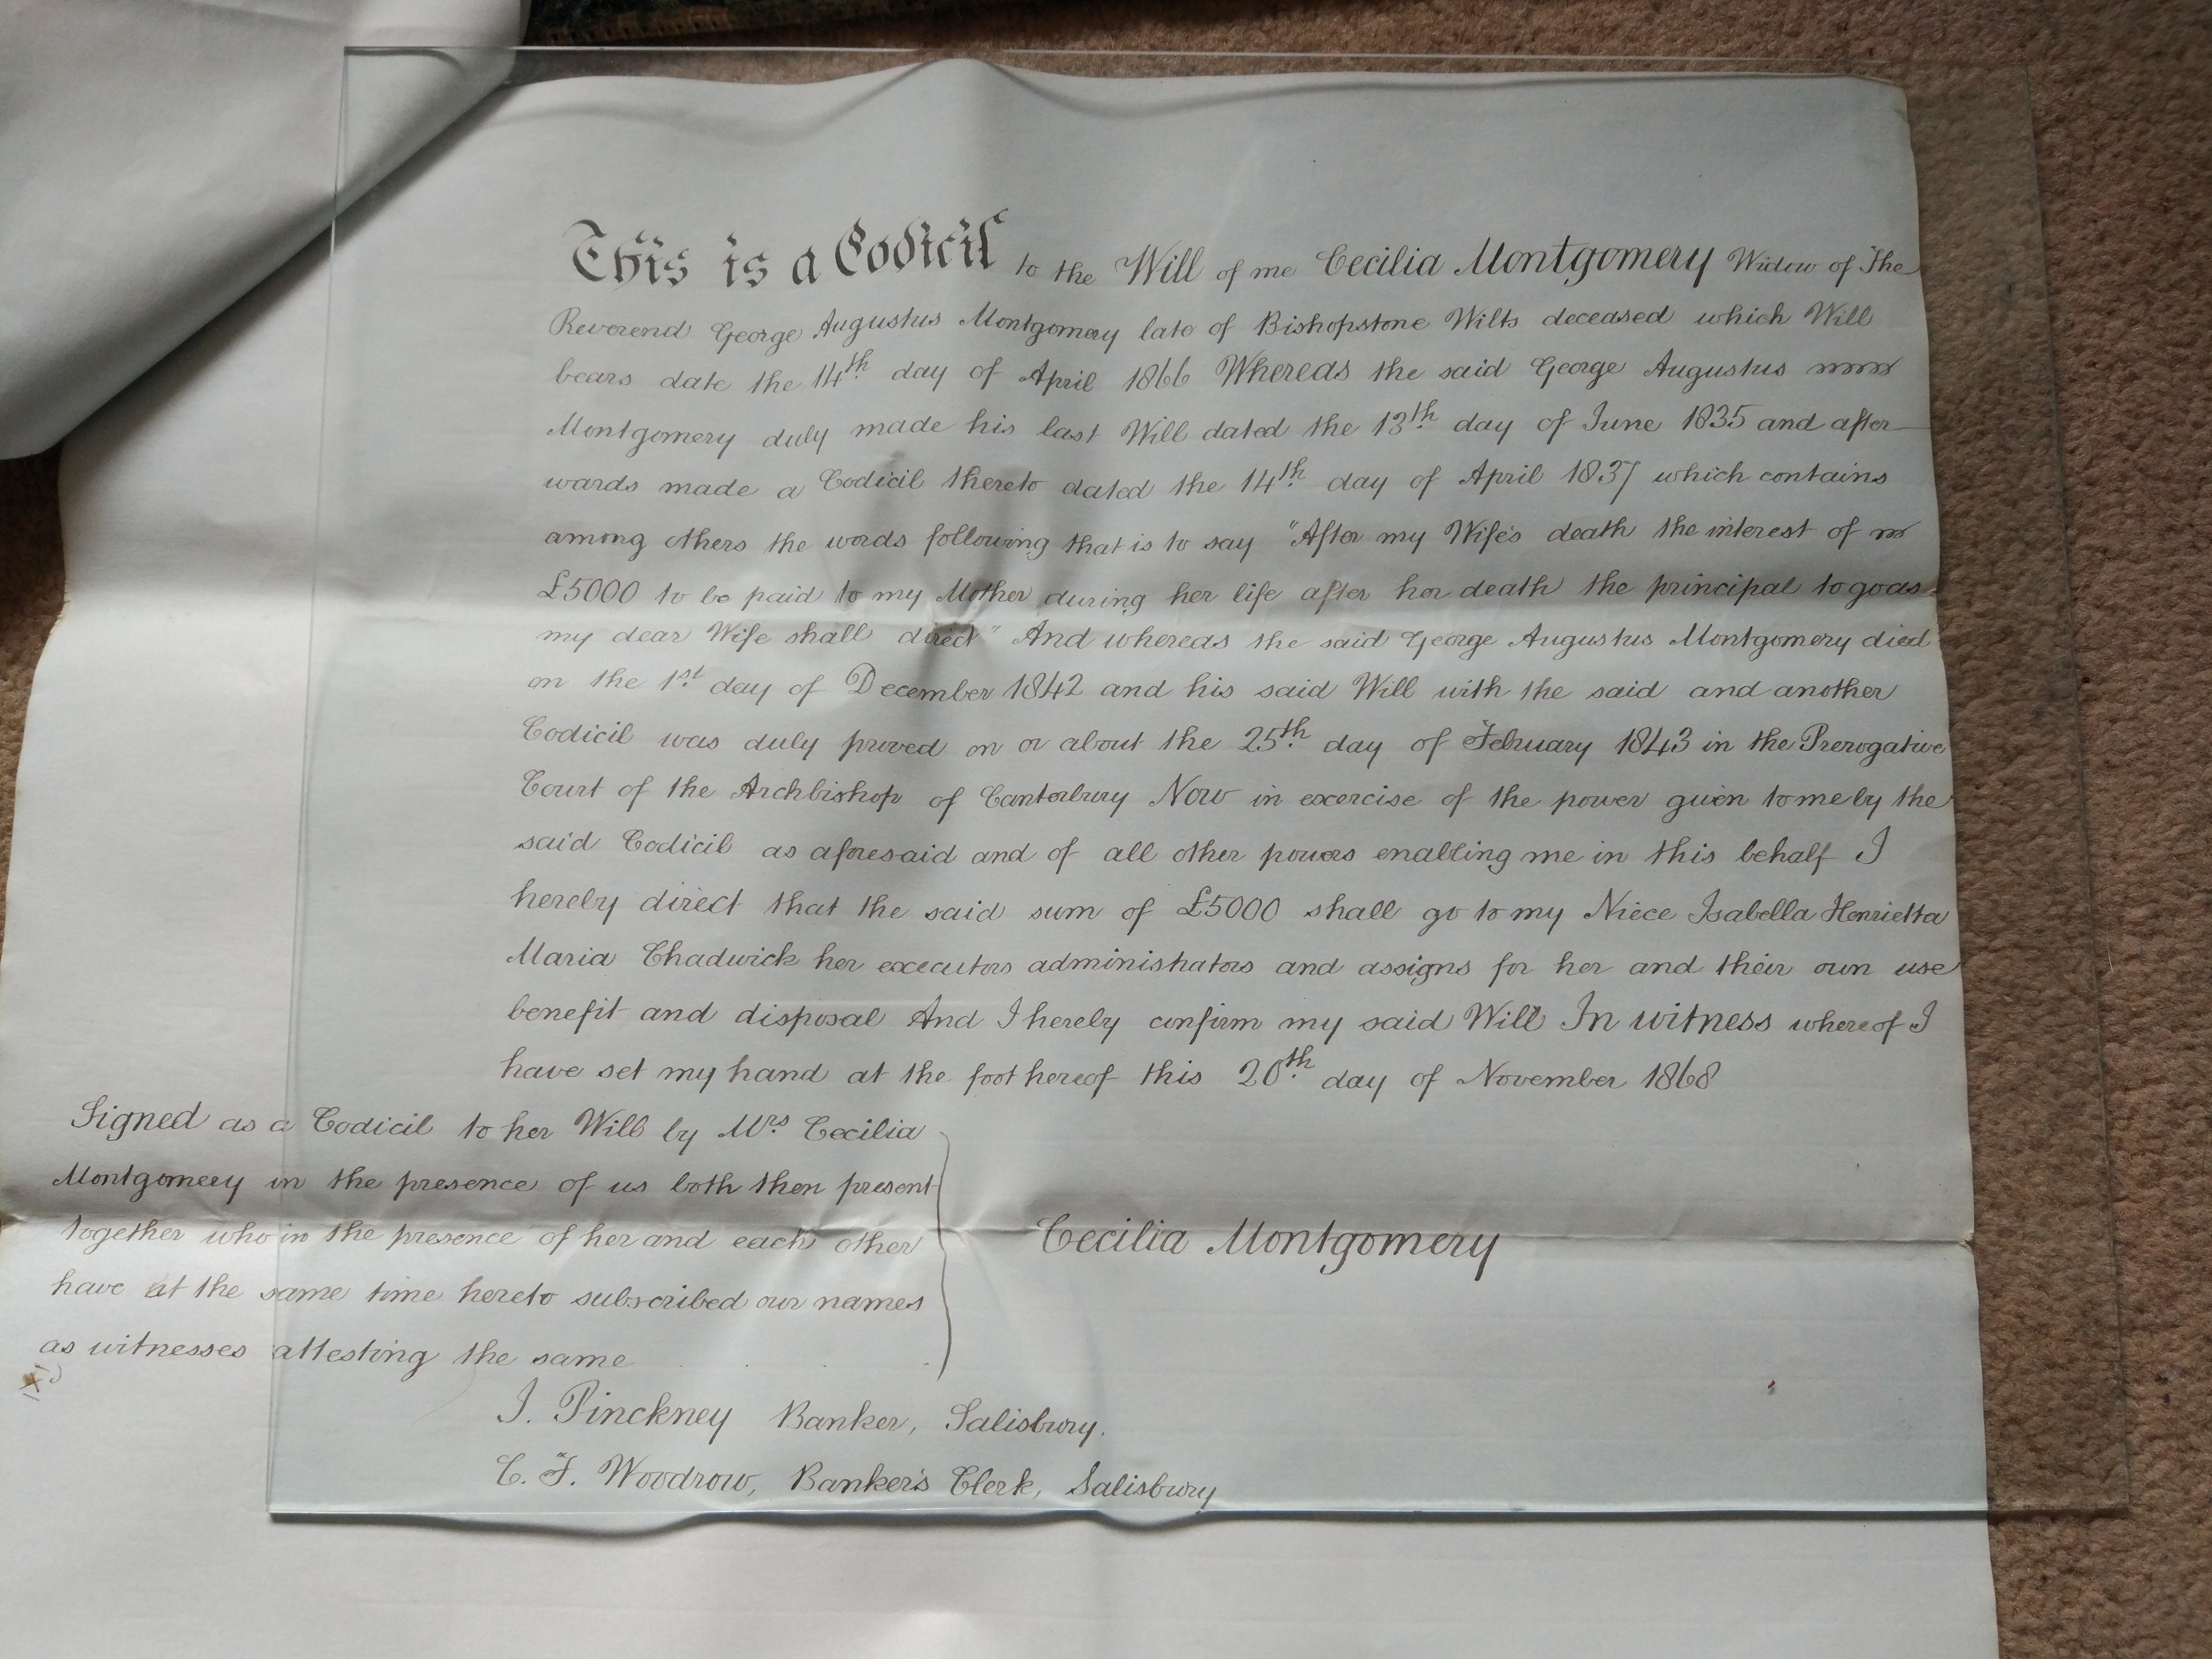 This is a Codicil to the Will of me Cecilia Montgomery Widow of The
Reverend George Augustus Montgomery late of Bishopstone Wilts deceased which Will
bears date the 14th day of April 1866 Whereas the said George Augustus
Montgomery duly made his last Will dated the 13th day of June 1835 and after
wards made a Codicil thereto dated the 14th day of April 1837 which contains
among others the words following that is to say "After my Wife's death the interest of
£5000 to be paid to my Mother during her life after her death the principal to go as
my dear Wife shall direct" And whereas the said George Augustus Montgomery died
on the 1st day of December 1842 and his said Will with the said and another
Codicil was duly proved on or about the 25th day of February 1843 in the Prerogative
Court of the Archbishop of Canterbury Now in exercise of the power given to me by the
said Codicil as aforesaid and of all other powers enabling me in this behalf I
hereby direct that the said sum of £5000 shall go to my Niece Isabella Henrietta
Maria Chadwick her executors administrators and assigns for her and their own use
benefit and disposal And I hereby confirm my said Will In witness whereof I
have set my hand at the foot hereof this 20th day of November 1868
Signed as a Codicil to her Will by Mrs Cecilia
Montgomery in the presence of us both then present
together who in the presence of her and each other
have at the same time hereto subscribed our names
as witnesses attesting the same
Cecilia Montgomery
J. Pinckney Banker, Salisbury.
C. F. Woodrow, Banker's Clerk, Salisbury